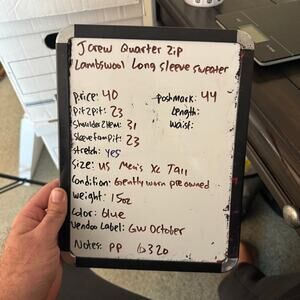 Jcrew Quarter Zip
Lambswool Long sleeve sweater
Price: 40
poshmark: 44
Pit2pit: 23
Length:
Shoulder2Hem: 31
waist:
Sleevefrompit: 23
Stretch: yes
Size: US Men's XL Tall
Condition: Gently worn preowned
Weight: 15oz
Color: blue
Vendoo Label: GW October
Notes: PP 6320